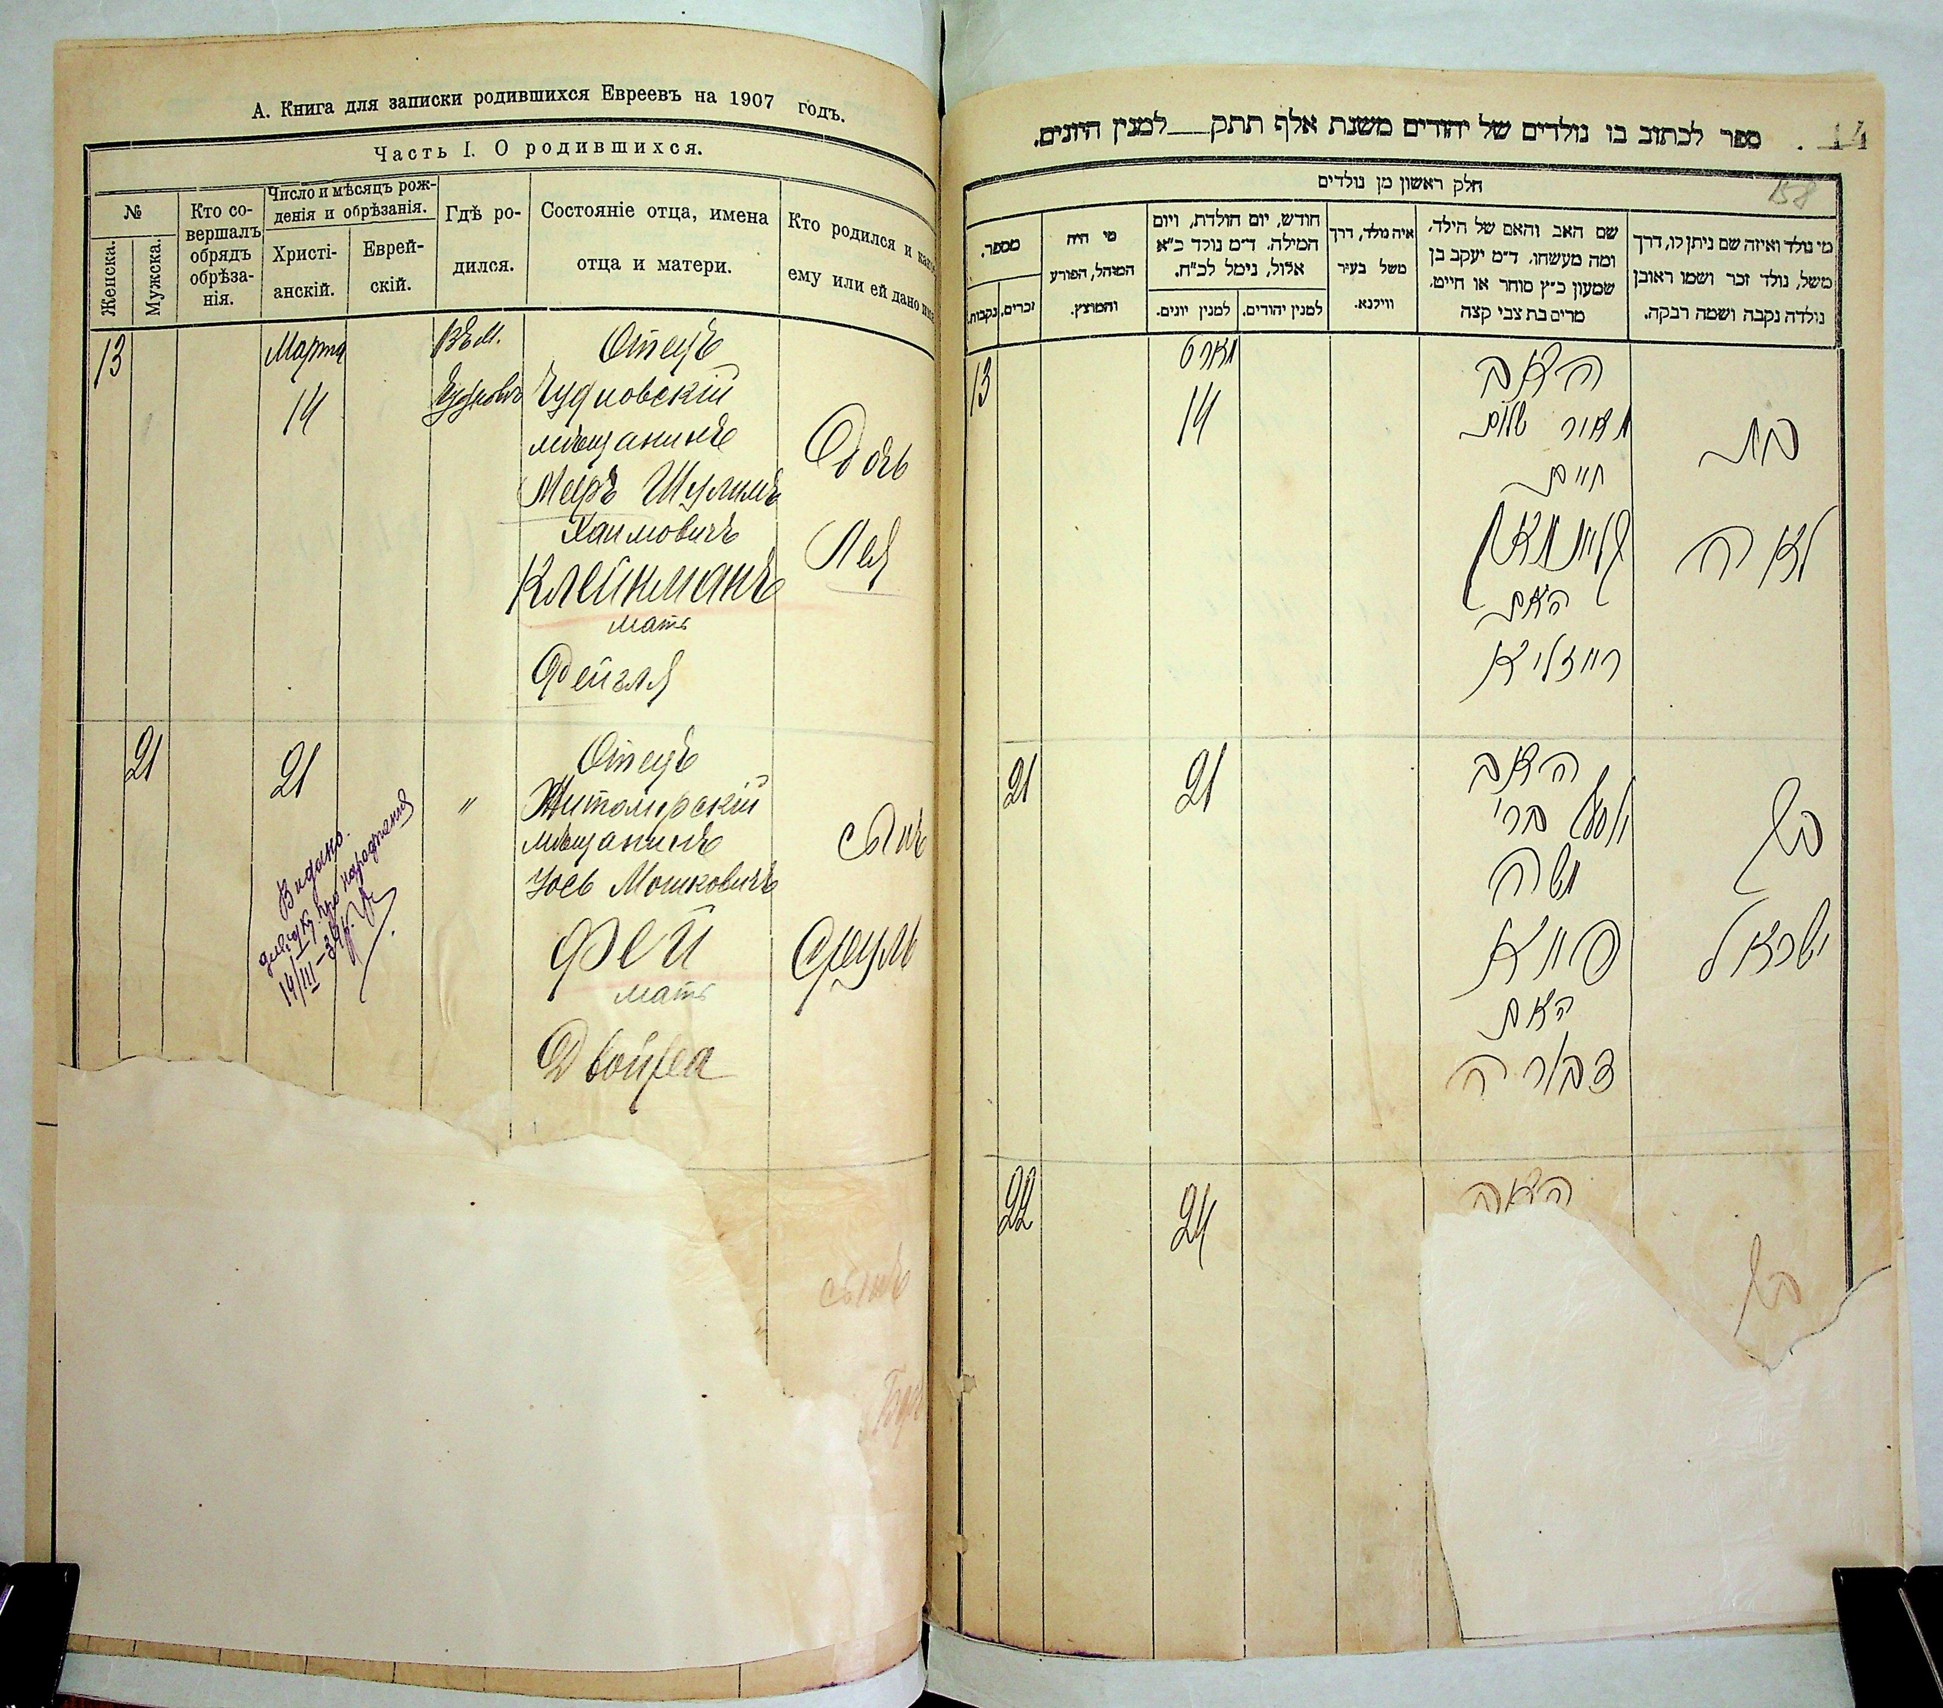 А. Книга для записки родившихся Евреевъ на 1907 годъ.
Часть I. О родившихся.
№
Женска.
Мужска.
Кто со-
вершалъ
обрядъ
обрѣза-
нія.
Число и мѣсяцъ рож-
денія и обрѣзанія.
Христі-
анскій.
Еврей-
скій.
Гдѣ ро-
дился.
Состояніе отца, имена
отца и матери.
Кто родился и какое
ему или ей дано имя
13
Марта
14
Въ м.
Чудновѣ
Отецъ
Чудновскій
мѣщанинъ
Меръ Шулимъ
Хаимовичъ
Клейнманъ
мать
Фейгля
Дочь
Лея
21
21
"
Отецъ
Житомирскій
мѣщанинъ
Іось Мошковичъ
Фей
мать
Двойра
сынъ
Сруль
Видано
про народження
14/III-39р.
сынъ
14
158
ספר לכתוב בו נולדים של יהודים משנת אלף תתק למנין היונים.
חלק ראשון מן נולדים
מי נולד ואיזה שם ניתן לו, דרך
משל, נולד זכר ושמו ראובן
נולדה נקבה ושמה רבקה.
שם האב והאם של הילד,
ומה מעשהו. ד״מ יעקב בן
שמעון כ״ץ סוחר או חייט,
מרים בת צבי קצה
איה נולד, דרך
משל בעיר
ווילנא.
חודש, יום הולדת, ויום
המילה. ד״מ נולד כ״א
אלול, נימל לכ״ח.
למנין יהודים.
למנין יונים.
מי היה
המוהל, הפורע
והמוצץ.
מספר.
זכרים.
נקבות.
13
מארט
14
האב
מאיר שלום
חיים
קליינמאן
האם
פייגליא
בת
לאה
21
21
האב
יוסף ברי
משה
פייא
האם
דבורה
בן
ישראל
22
24
האב
בן